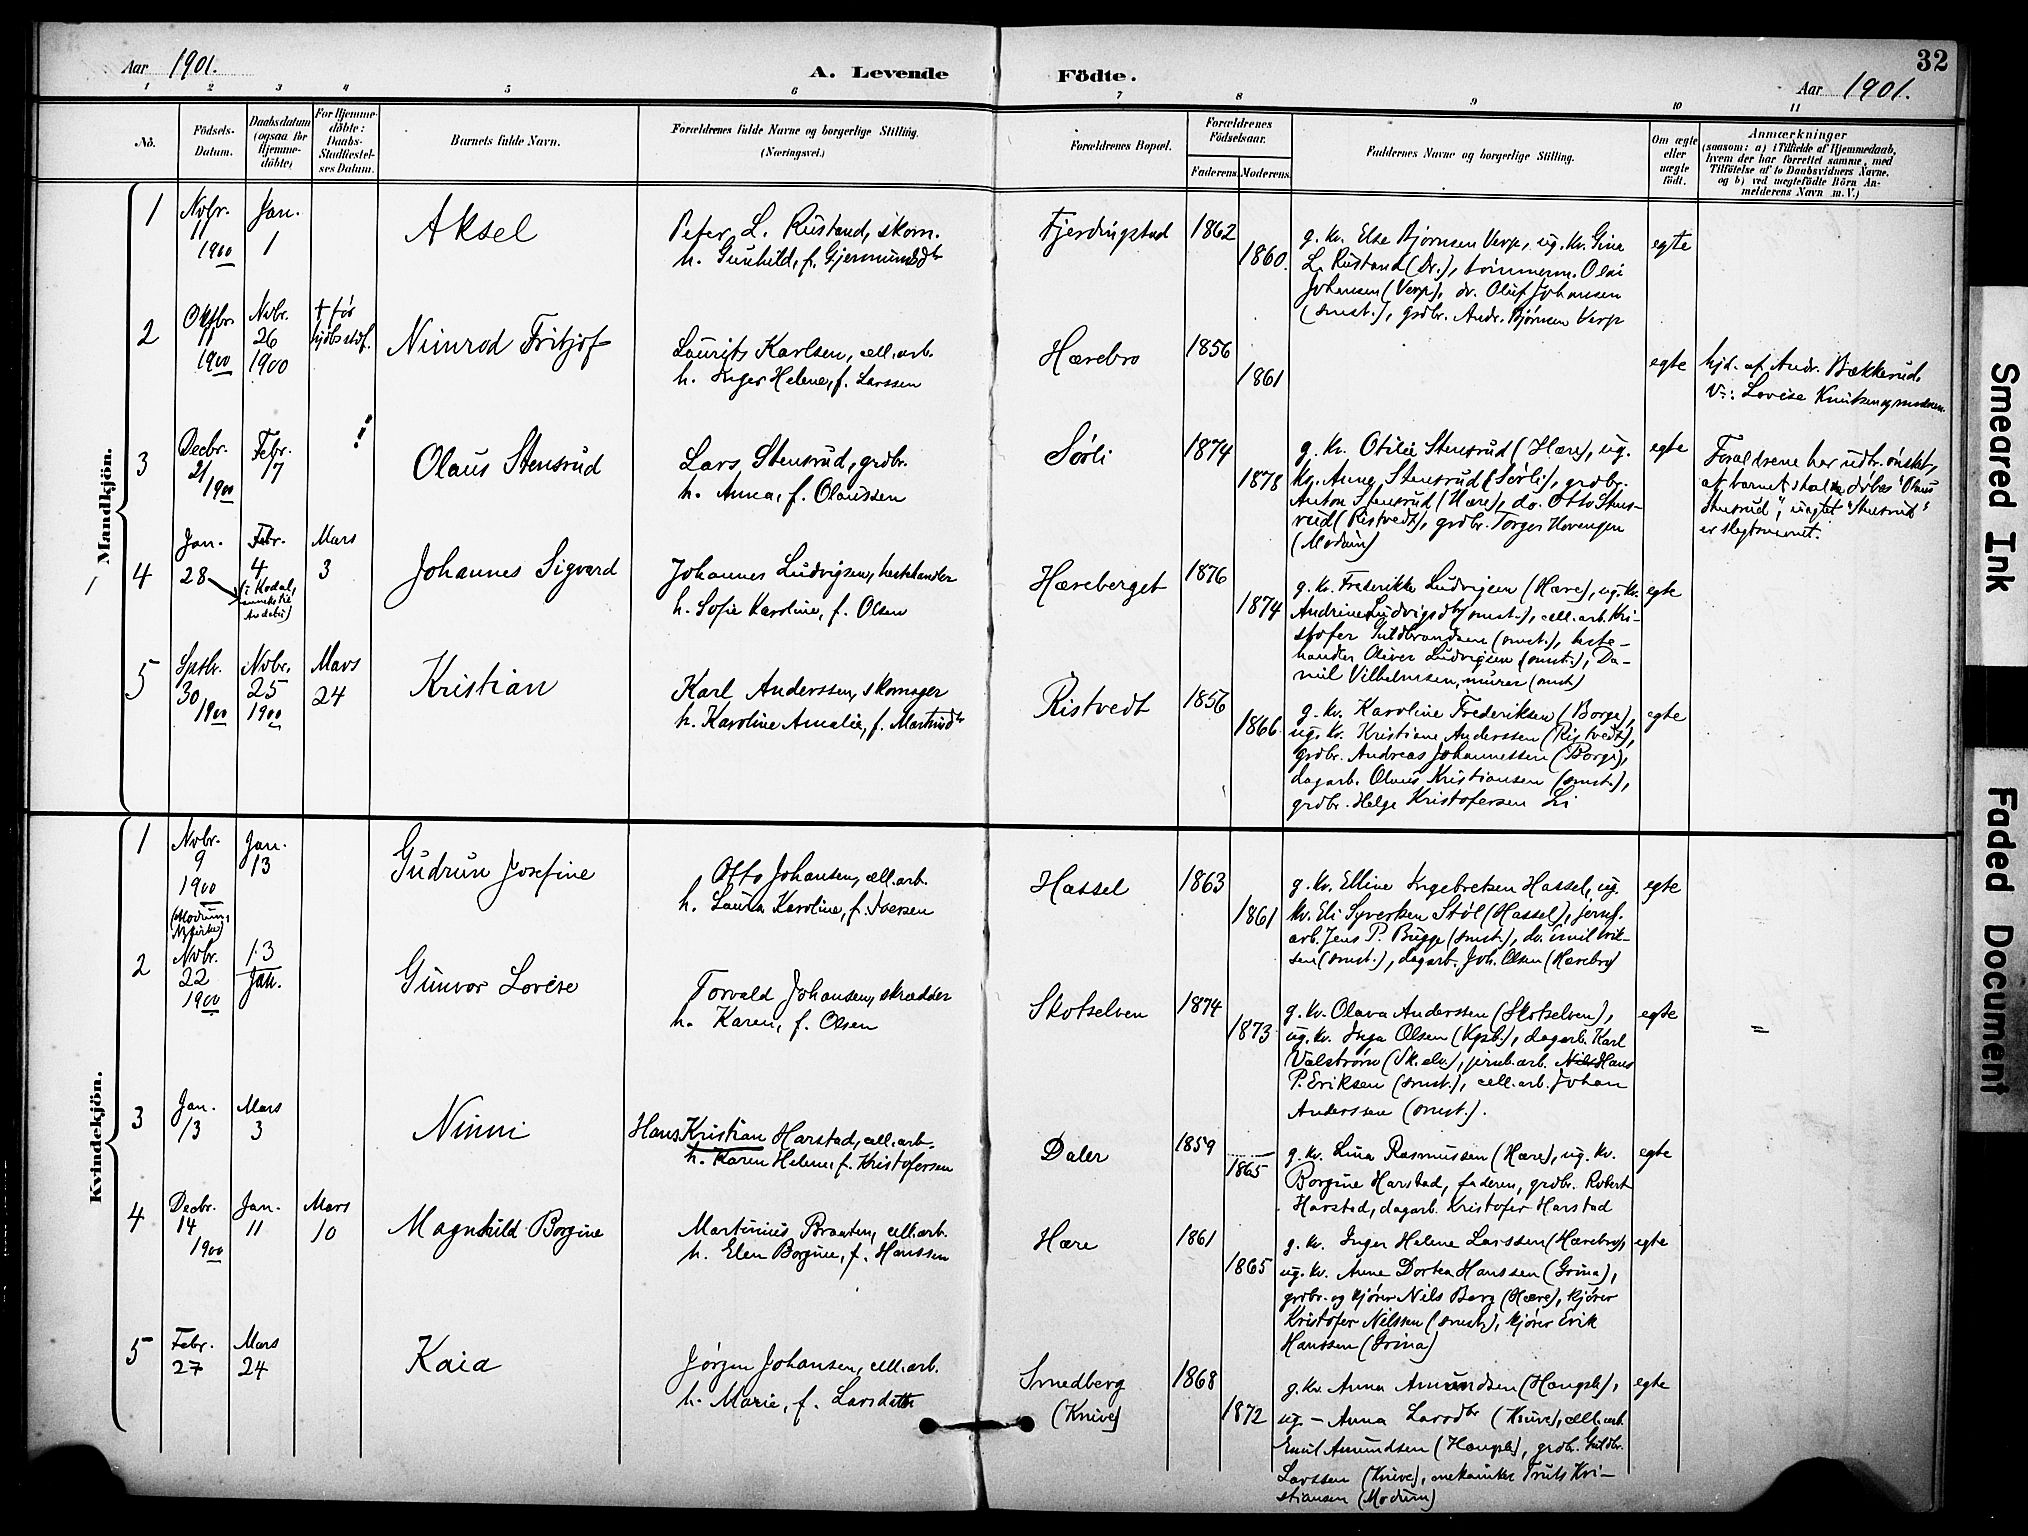 32
Aar 1901.
A. Levende Födte.
Aar 1901.
1 2 3 4 5 6 7 8 9 10 11
No.
Födsels-
Datum.
Daabsdatum
(ogsaa for
Hjemme-
döbte)
For Hjemme-
döbte:
Daabs-
Stadfæstel-
ses Datum.
Barnets fulde Navn.
Forældrenes fulde Navne og borgerlige Stilling.
(Næringsvei.)
Forældrenes Bopæl.
Forældrenes
Födselsaar.
Faderens. Moderens.
Faddernes Navne og borgerlige Stilling.
Om ægte
eller
uægte
födt.
Anmærkninger
(saasom: a) i Tilfælde af Hjemmedaab,
hvem der har forrettet samme, med
Tilföielse af to Daabsvidners Navne.
og b) ved uægtefödte Börn An-
melderens Navn m. V.)
Mandkjön.
1
Novbr.
11
1900
Jan.
1
Aksel
Peter L. Rustand, skom.
h. Gunhild, f. Gjermundsdtr
Fjerdingstad
1862
1860.
g. kv. Else Bjørnsen Verp, ug. kv. Gina
L. Rustand (Dr.), tømmerm. Olai
Johansen (Verp), dr. Oluf Johansen
(smst.), grdbr. Andr. Bjørnsen Verp
egte
2
Oktbr.
11
1900
Novbr.
26
1900
† før
Nimrod Fritjof
Laurits Karlsen, cell.arb.
h. Inger Helene, f. Larssen
Hærebro
1856
1861
egte
hjd. af Andr. Bækkerud.
V.: Lovise Knutsen og moderen.
3
Decbr.
21
1900
Febr.
17
Olaus Stensrud
Lars Stensrud, grdbr.
h. Anna, f. Olaussen
Sørli
1874
1878
g. kv. Otilie Stensrud (Hære), ug.
kv. Anna Stensrud (Sørli), grdbr.
Anton Stensrud (Hære), do. Otto Stens-
rud (Ristvedt), grdbr. Torger Hovengen
(Modum)
egte
Forældrene har udtr. ønsket,
at barnet skal døbes "Olaus
Stensrud", uagtet "Stensrud"
er slegtsnavnet.
4
Jan.
28
Febr.
4
(i Kodal,
anneks til
Andebu)
Mars
3
Johannes Sigvard
Johannes Ludvigsen, hestehandler
h. Sofie Karoline, f. Olsen
Hæreberget
1876
1874
g. kv. Frederikke Ludvigsen (Hære), ug. kv.
Andrine Ludvigsdtr (smst.), cell.arb. Kri-
stofer Guldbrandsen (smst.), heste-
handler Oliver Ludvigsen (smst.), Da-
niel Vilhelmsen, murer (smst)
egte
5
Septbr.
30
1900
Novbr.
25
1900
Mars
24
Kristian
Karl Anderssen, skomager
h. Karoline Amalie, f. Martinsdtr
Ristvedt
1856
1866
g. kv. Karoline Frederiksen (Borge),
ug. kv. Kristiane Anderssen (Ristvedt),
grdbr. Andreas Johannessen (Borge),
dagarb. Olaus Kristiansen (smst.),
grdbr. Helge Kristofersen Li
egte
Kvindekjön.
1
Novbr.
9
1900
(Modum,
Nykirke)
Jan.
13
Gudrun Josefine
Otto Johansen, cell.arb.
h. Laura Karoline, f. Iversen
Hassel
1863
1861
g. kv. Elline Ingebretsen Hassel, ug.
kv. Eli Syversen Støl (Hassel), jernf.
arb. Jens P. Bugge (smst.), do. Emil Eril-
sen (smst.), dagarb. Joh. Olsen (Hærebro)
egte
2
Novbr.
22
1900
13
Jan.
Gunvor Lovise
Torvald Johansen, skrædder
h. Karen, f. Olsen
Skotselven
1874
1873
g. kv. Olava Anderssen (Skotselven),
ug. kv. Inga Olsen (Kgsb.), dagarb. Karl
Valstrøm (Sk.elv.), jernb.arb. Nils Hans
P. Eriksen (smst.), cell.arb. Johan
Anderssen (smst.).
egte
=
3
Jan.
13
Mars
3
Ninni
Hans Kristian Harstad, cell.arb.
h. Karen Helene, f. Kristofersen
Daler
1859
1865
g. kv. Lina Rasmussen (Hære), ug. kv.
Borgine Harstad, faderen, grdbr. Robert
Harstad, dagarb. Kristofer Harstad
egte
4
Decbr.
14
1900
Jan.
11
Mars
10
Magnhild Borgine
Martinius Braaten, cell.arb.
h. Elen Borgine, f. Hanssen
Hære
1861
1865
g. kv. Inger Helene Larssen (Hærebro),
ug. kv. Anne Dortea Hanssen (Grina),
grdbr. og kjører Nils Berg (Hære), kjører
Kristofer Nilssen (smst), kjører Erik
Hanssen (Grina)
egte
5
Febr.
27
Mars
24
Kaia
Jørgen Johansen, cell.arb.
h. Marie, f. Larsdatter
Smedberg
(Knive)
1868
1872
g. kv. Anna Amundsen (Haugsb.),
ug. — Anna Larsdtr (Knive), cell.arb.
Emil Amundsen (Haugsb), grdbr. Guldbr.
Larssen (Knive), mekaniker Truls Kri-
stiansen (Modum)
egte
Smeared Ink
Faded Document